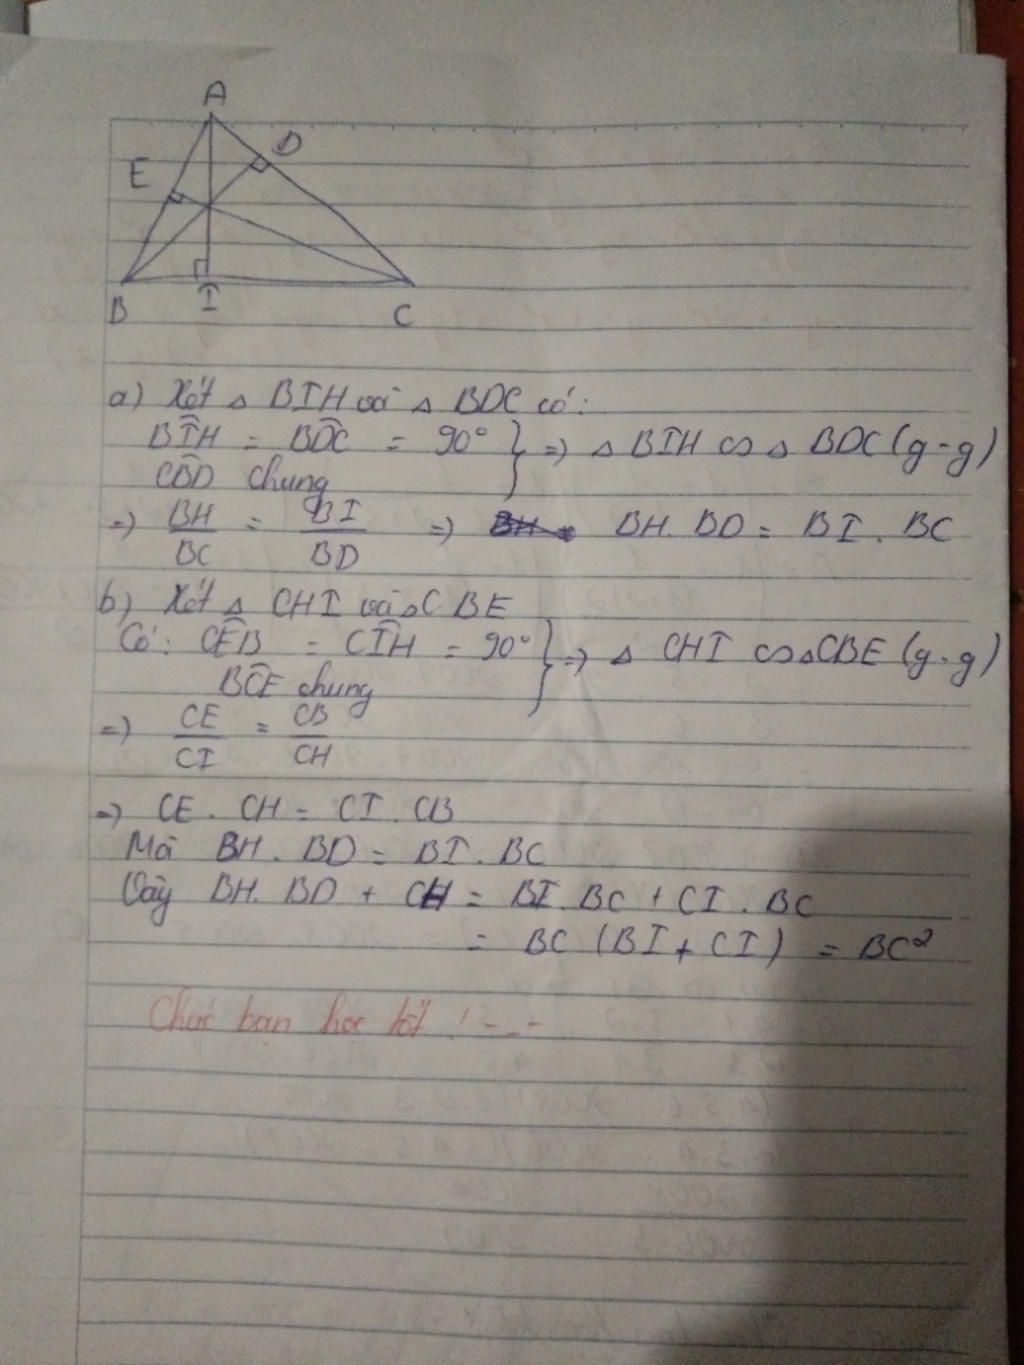 A
D
E
B
I
C
a) Xét △ BIH và △ BDC có:
BÎH = BD̂C = 90° } => △ BIH ∽ △ BDC (g-g)
CB̂D chung
=> BH/BC = BI/BD => BH. BD = BI . BC
b) Xét △ CHI và △ CBE
Có: CÊB = CÎH = 90° } => △ CHI ∽ △CBE (g.g)
BĈE chung
=> CE/CI = CB/CH
=> CE . CH = CI . CB
Mà BH. BD = BI . BC
Vậy BH. BD + CH = BI. BC + CI . BC
= BC (BI + CI) = BC²
Chúc bạn học tốt ! -.-